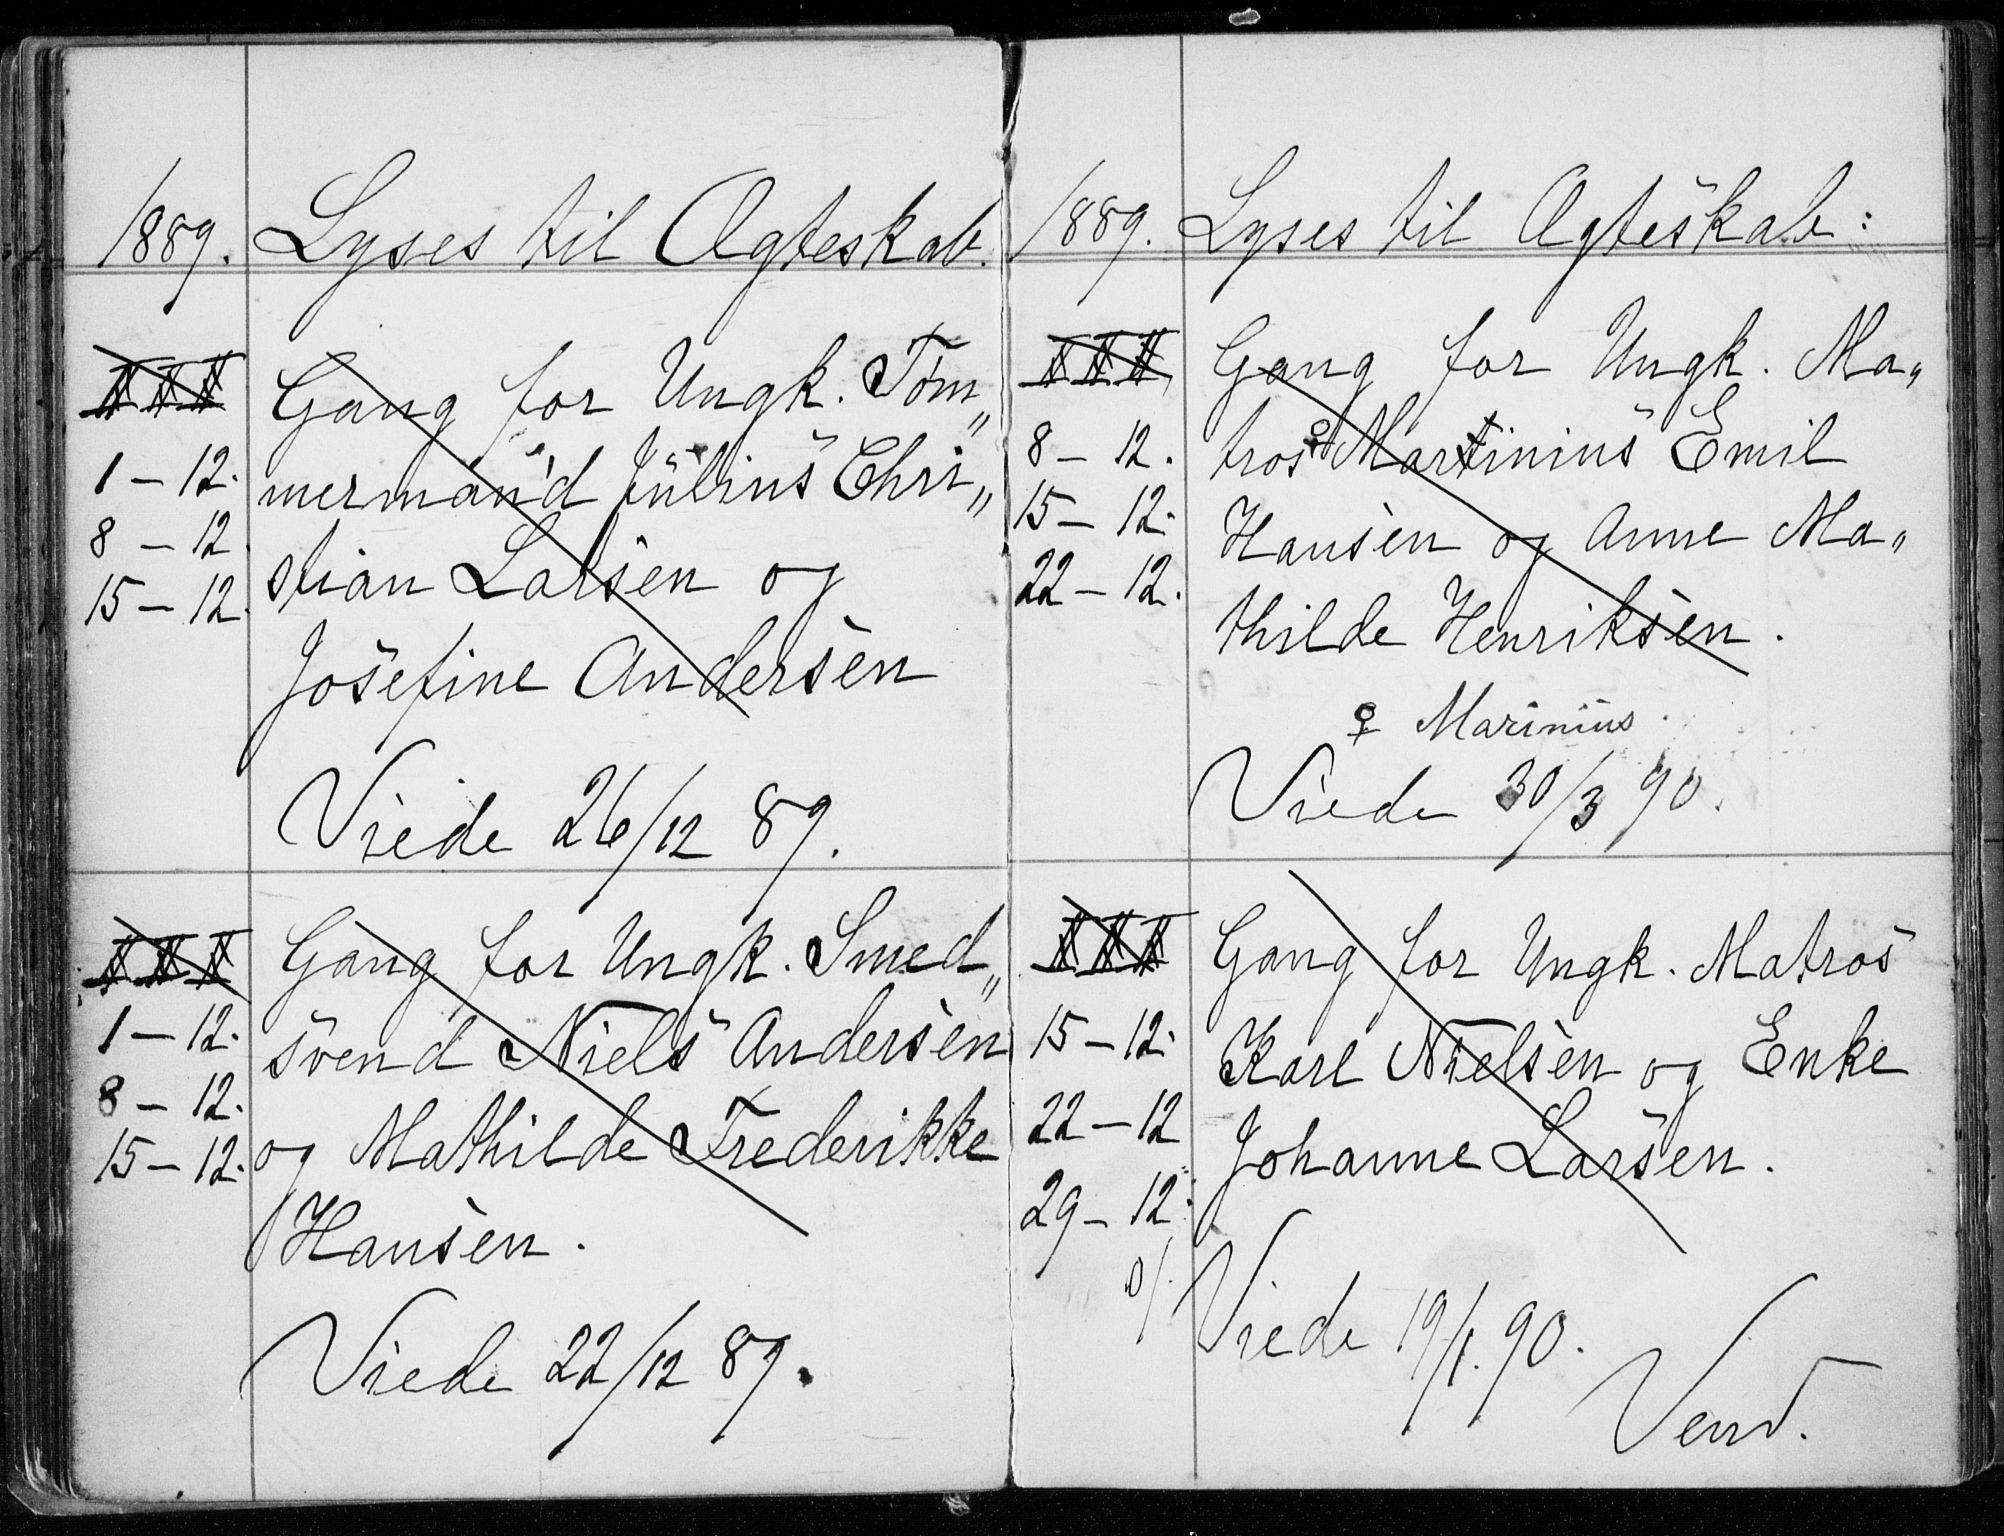 1889. Lyses til Ægteskab.
I II III Gang for Ungk. Töm„
1 – 12. mermand Julius Chri„
8 – 12. stian Larsen og
15 – 12. Josefine Andersen
Viede 26/12 89.
I II III Gang for Ungk. Smed„
1 – 12. svend Niels Andersen
8 – 12. og Mathilde Frederikke
15 – 12. Hansen.
Viede 22/12 89.
1889. Lyses til Ægteskab:
I II III Gang for Ungk. Ma„
8 – 12. tros ♀ Martinius Emil
15 – 12. Hansen og Anne Ma„
22 – 12. thilde Henriksen.
♀ Marinius.
Viede 30/3 90.
I II III Gang for Ungk. Matros
15 – 12. Karl Nielsen og Enke
22 – 12 Johanne Larsen.
29 – 12.
Viede 19/1. 90.
Vend.